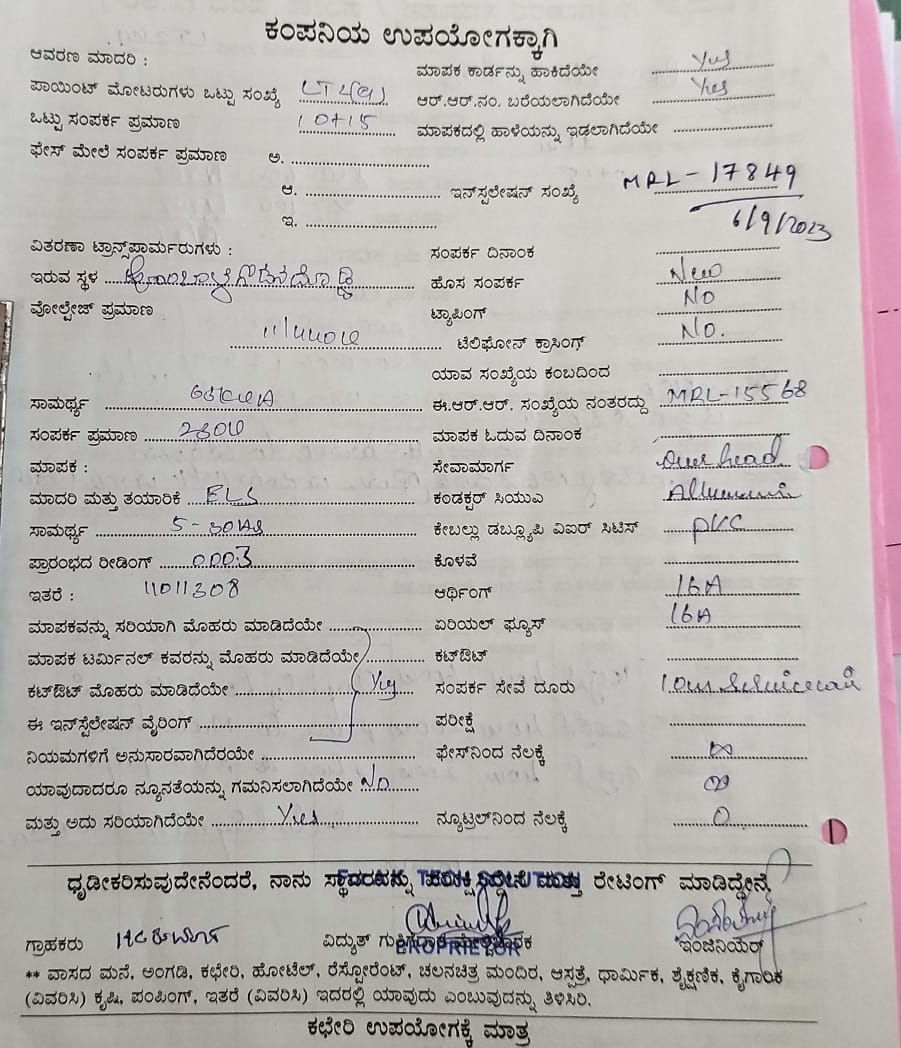 ಕಂಪನಿಯ ಉಪಯೋಗಕ್ಕಾಗಿ
ಆವರಣ ಮಾದರಿ : ಮಾಪಕ ಕಾರ್ಡನ್ನು ಹಾಕಿದೆಯೇ Yes
ಪಾಯಿಂಟ್ ಮೋಟರುಗಳು ಒಟ್ಟು ಸಂಖ್ಯೆ LT4(a) ಆರ್.ಆರ್.ನಂ. ಬರೆಯಲಾಗಿದೆಯೇ Yes
ಒಟ್ಟು ಸಂಪರ್ಕ ಪ್ರಮಾಣ 10+15 ಮಾಪಕದಲ್ಲಿ ಹಾಳೆಯನ್ನು ಇಡಲಾಗಿದೆಯೇ
ಫೇಸ್ ಮೇಲೆ ಸಂಪರ್ಕ ಪ್ರಮಾಣ ಅ.
ಆ. ಇನ್‌ಸ್ಪಲೇಷನ್ ಸಂಖ್ಯೆ MRL-17849
ಇ. 6/9/2023
ವಿತರಣಾ ಟ್ರಾನ್ಸ್‌ಫಾರ್ಮರುಗಳು : ಸಂಪರ್ಕ ದಿನಾಂಕ
ಇರುವ ಸ್ಥಳ ಹೊಸ ಸಂಪರ್ಕ New
ವೋಲ್ಟೇಜ್ ಪ್ರಮಾಣ ಟ್ಯಾಪಿಂಗ್ NO
11/440V ಟೆಲಿಫೋನ್ ಕ್ರಾಸಿಂಗ್ No.
ಯಾವ ಸಂಖ್ಯೆಯ ಕಂಬದಿಂದ
ಸಾಮರ್ಥ್ಯ ಈ.ಆರ್.ಆರ್. ಸಂಖ್ಯೆಯ ನಂತರದ್ದು MRL-15568
ಸಂಪರ್ಕ ಪ್ರಮಾಣ 230V ಮಾಪಕ ಓದುವ ದಿನಾಂಕ
ಮಾಪಕ : ಸೇವಾಮಾರ್ಗ Over head
ಮಾದರಿ ಮತ್ತು ತಯಾರಿಕೆ ELS ಕಂಡಕ್ಟರ್ ಸಿಯುಎ
ಸಾಮರ್ಥ್ಯ 5-30A ಕೇಬಲ್ಲು ಡಬ್ಲ್ಯೂಪಿ ವಿಐಆರ್ ಸಿಟಿಸ್ PVC
ಪ್ರಾರಂಭದ ರೀಡಿಂಗ್ 0003 ಕೊಳವೆ
ಇತರೆ : 11011308 ಆರ್ಥಿಂಗ್ 16A
ಮಾಪಕವನ್ನು ಸರಿಯಾಗಿ ಮೊಹರು ಮಾಡಿದೆಯೇ ಏರಿಯಲ್ ಫ್ಯೂಸ್ 16A
ಮಾಪಕ ಟರ್ಮಿನಲ್ ಕವರನ್ನು ಮೊಹರು ಮಾಡಿದೆಯೇ ಕಟ್‌ಔಟ್
ಕಟ್‌ಔಟ್ ಮೊಹರು ಮಾಡಿದೆಯೇ Yes ಸಂಪರ್ಕ ಸೇವೆ ದೂರು
ಈ ಇನ್‌ಸ್ಪೆಲೇಷನ್ ವೈರಿಂಗ್ ಪರೀಕ್ಷೆ
ನಿಯಮಗಳಿಗೆ ಅನುಸಾರವಾಗಿದೆರಯೇ ಫೇಸ್‌ನಿಂದ ನೆಲಕ್ಕೆ ∞
ಯಾವುದಾದರೂ ನ್ಯೂನತೆಯನ್ನು ಗಮನಿಸಲಾಗಿದೆಯೇ No ∞
ಮತ್ತು ಅದು ಸರಿಯಾಗಿದೆಯೇ Yes ನ್ಯೂಟ್ರಲ್‌ನಿಂದ ನೆಲಕ್ಕೆ 0
ಧೃಡೀಕರಿಸುವುದೇನೆಂದರೆ, ನಾನು ಸ್ಥಾವರವನ್ನು ಮತ್ತು ರೇಟಿಂಗ್ ಮಾಡಿದ್ದೇನೆ
ಗ್ರಾಹಕರು ವಿದ್ಯುತ್ PROPRIETOR ಇಂಜಿನಿಯರ್
** ವಾಸದ ಮನೆ, ಅಂಗಡಿ, ಕಛೇರಿ, ಹೋಟೆಲ್, ರೆಸ್ಟೋರೆಂಟ್, ಚಲನಚಿತ್ರ ಮಂದಿರ, ಆಸ್ಪತ್ರೆ, ಧಾರ್ಮಿಕ, ಶೈಕ್ಷಣಿಕ, ಕೈಗಾರಿಕ
(ವಿವರಿಸಿ) ಕೃಷಿ, ಪಂಪಿಂಗ್, ಇತರೆ (ವಿವರಿಸಿ) ಇದರಲ್ಲಿ ಯಾವುದು ಎಂಬುವುದನ್ನು ತಿಳಿಸಿರಿ.
ಕಛೇರಿ ಉಪಯೋಗಕ್ಕೆ ಮಾತ್ರ